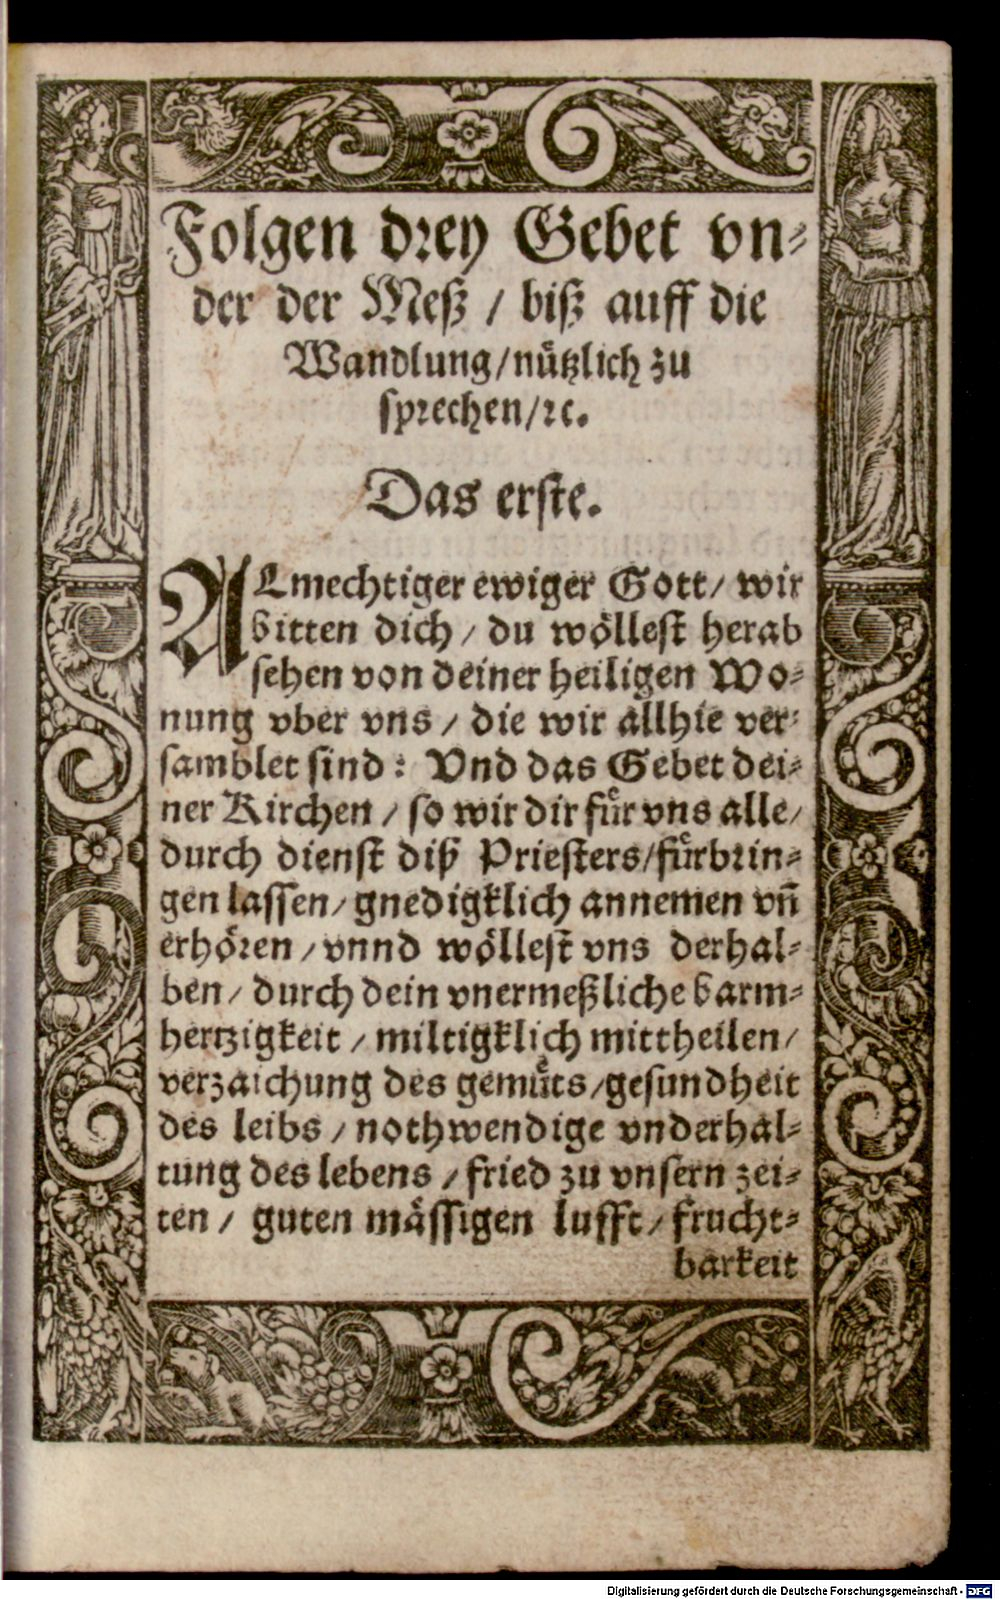 Folgen drey Gebet vn⸗
der der Meß / biß auff die
Wandlung/nuͤtzlich zu
sprechen/ꝛc.
Das erste.
ALmechtiger ewiger Gott/ wir
bitten dich/ du woͤllest herab
sehen von deiner heiligen Wo⸗
nung vber vns / die wir allhie ver⸗
samblet sind: Vnd das Gebet dei⸗
ner Kirchen / so wir dir fuͤr vns alle/
durch dienst diß Priesters/fuͤrbrin⸗
gen lassen/ gnedigklich annemen vñ
erhoͤren / vnnd woͤllest vns derhal⸗
ben/ durch dein vnermeßliche barm⸗
hertzigkeit / miltigklich mittheilen/
verzaichung des gemuͤts/gesundheit
des leibs / nothwendige vnderhal⸗
tung des lebens / fried zu vnsern zei⸗
ten / guten maͤssigen lufft/ frucht⸗
barkeit
Digitalisierung gefördert durch die Deutsche Forschungsgemeinschaft - DFG